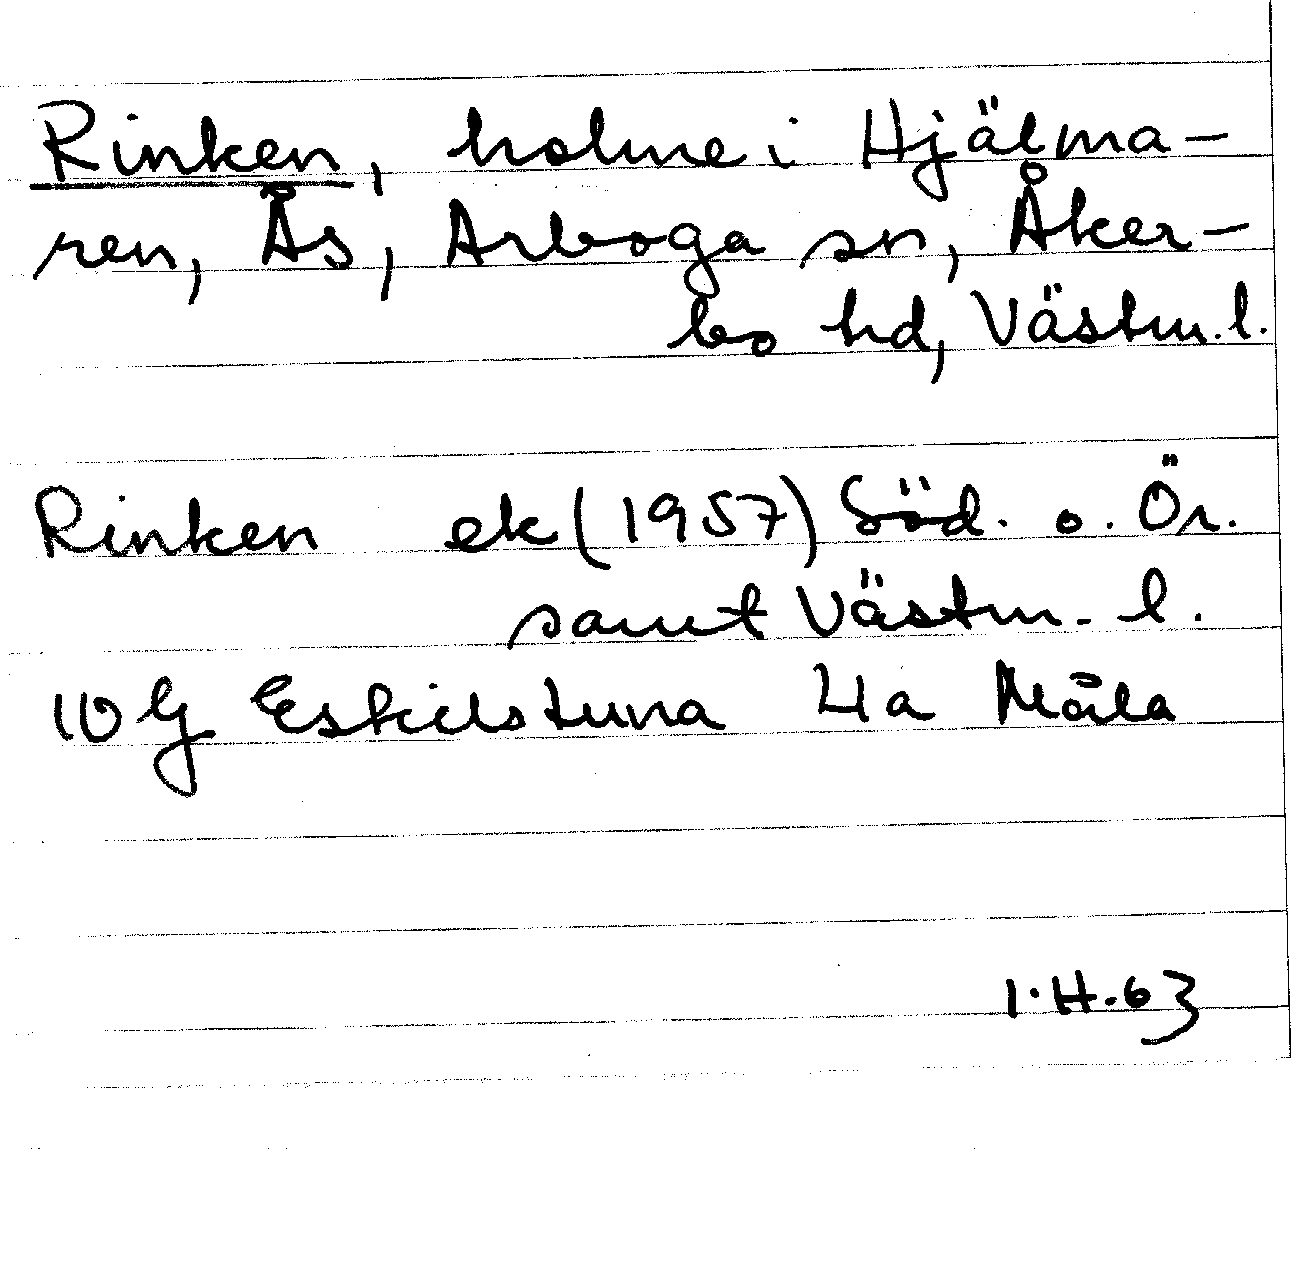 Rinken, holme i Hjälma-
ren, Ås, Arboga sn, Åker-
bo hd, Västm. l.
Rinken ek (1957) Söd. o. Ör.
samt Västm. l.
10 G Eskilstuna 4a Måla
1.4.63